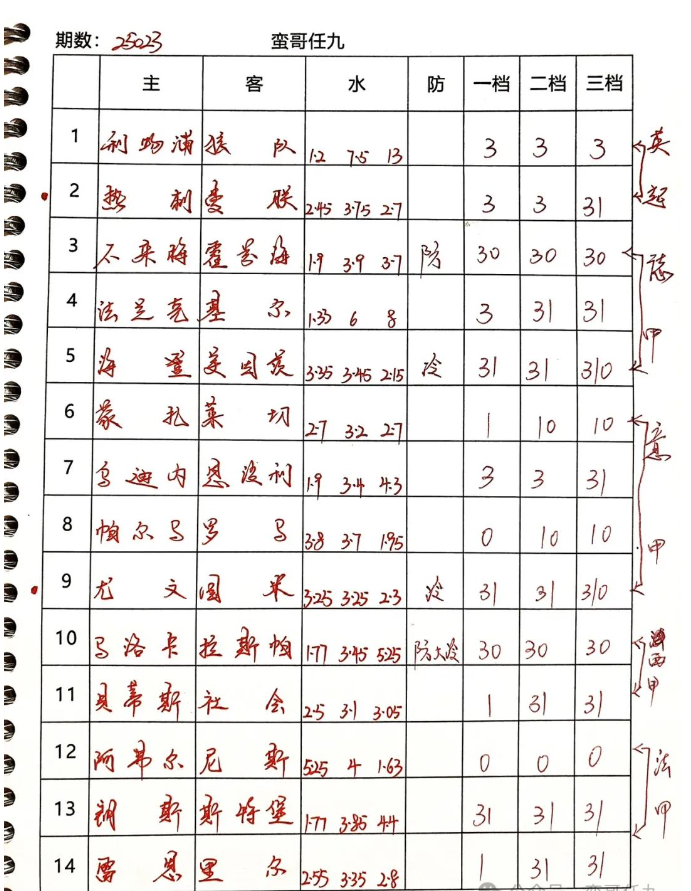 期数: 25023 蛮哥任九
主 客 水 防 一档 二档 三档
1 利物浦 狼队 1.2 7.5 13 3 3 3 英
2 热刺 曼联 2.45 3.75 2.7 3 3 31 超
3 不来梅 霍芬海 1.9 3.9 3.7 防 30 30 30 德
4 法兰克 基尔 1.33 6 8 3 31 31 甲
5 海登 门因茨 3.35 3.45 2.15 冷 31 31 310
6 蒙扎 莱切 2.7 3.2 2.7 1 10 10 意
7 乌迪内 恩波利 1.9 3.4 4.3 3 3 31
8 帕尔马 罗马 3.8 3.7 1.95 0 10 10 甲
9 尤文 国米 3.25 3.25 2.3 冷 31 31 310
10 马洛卡 拉斯帕 1.77 3.45 5.25 防大冷 30 30 30 西
11 贝蒂斯 社会 2.5 3.1 3.05 1 31 31 甲
12 阿弗尔 尼斯 5.25 4 1.63 0 0 0 法
13 朗斯 斯特堡 1.77 3.85 4.4 31 31 31 甲
14 雷恩 里尔 2.55 3.35 2.8 1 31 31
公众号 · 蛮哥任九